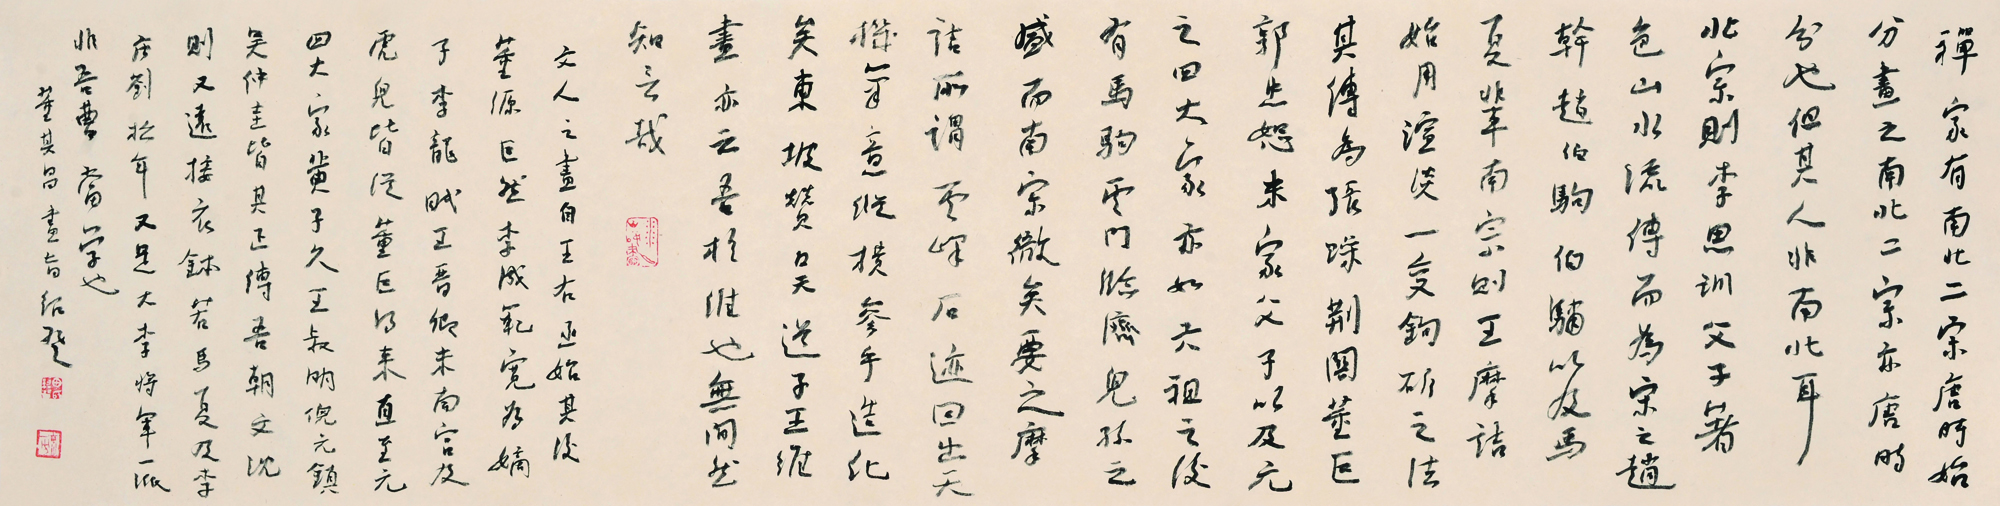 禪家有南北二宗唐時始
分畫之南北二宗亦唐時
分也但其人非南北耳
北宗則李思訓父子著
色山水流傳而為宋之趙
幹趙伯駒伯驌以及馬
夏輩南宗則王摩詰
始用渲淡一變鉤斫之法
其傳為張璪荊關董巨
郭忠恕米家父子以及元
之四大家亦如六祖之後
有馬駒雲門臨濟兒孫之
盛而南宗微矣要之摩
詰所謂雲峰石迹迥出天
機筆意縱橫參乎造化
矣東坡贊吳道子王維
畫亦云吾於維也無間然
知言哉
文人之畫自王右丞始其後
董源巨然李成范寬為嫡
子李龍眠王晉卿米南宮及
虎兒皆從董巨得來直至元
四大家黃子久王叔明倪元鎮
吳仲圭皆其正傳吾朝文沈
則又遠接衣鉢若馬夏及李
唐劉松年又是大李將軍一派
非吾曹當學也
董其昌畫旨紹登